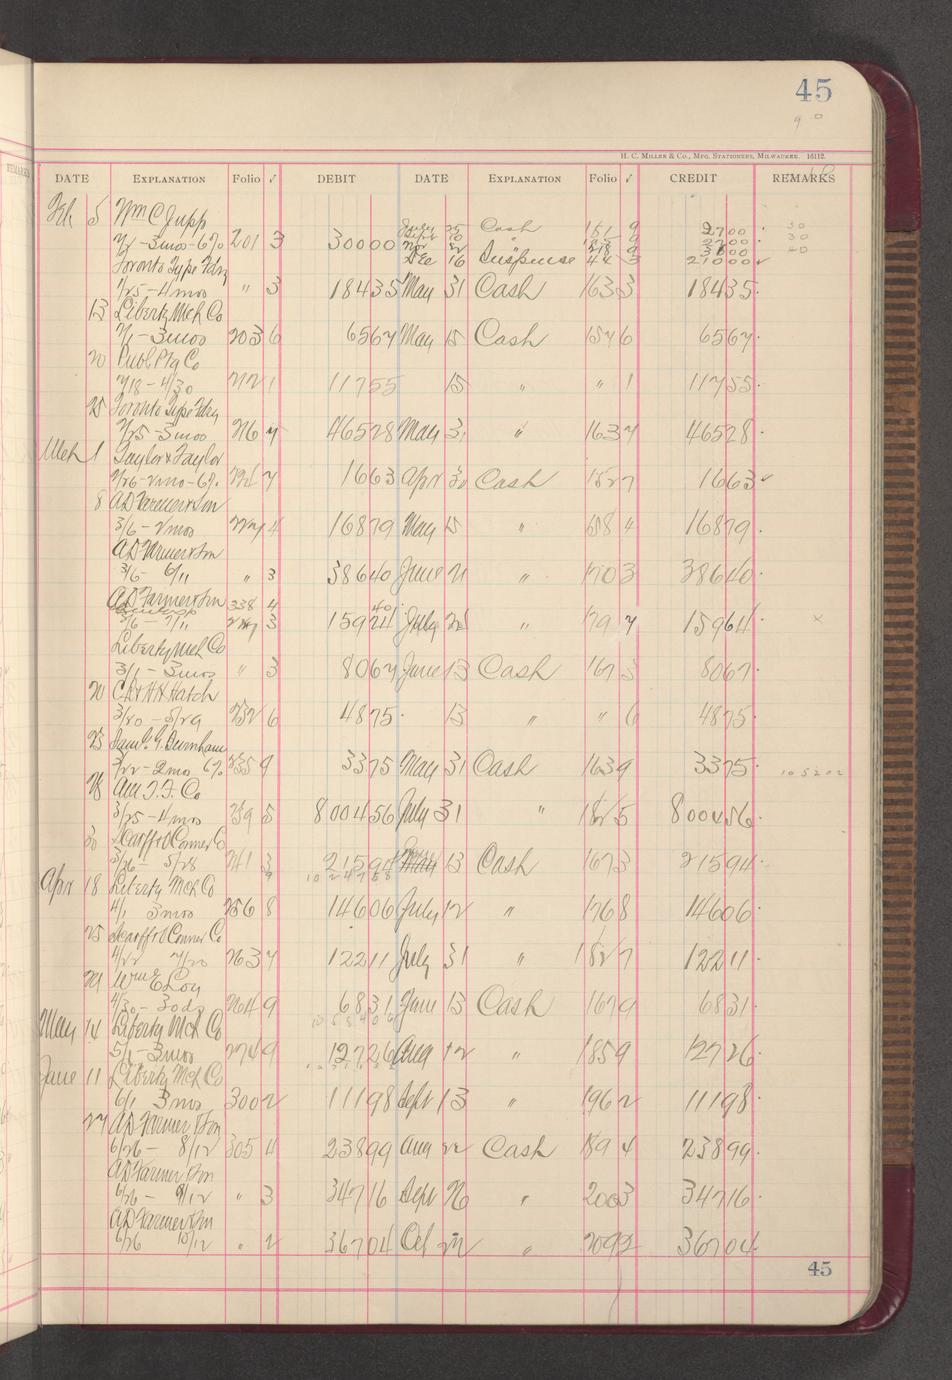 45
H. C. Miller & Co., Mfg. Stationers, Milwaukee. 16112.
DATE EXPLANATION Folio ✓ DEBIT DATE EXPLANATION Folio ✓ CREDIT REMARKS
Feb 5 Wm C Jupp
- 3mos - 6% 201 3 300 00
Cash 151 9 27 00
Dec 16 Suspense 3 210 00
Toronto Type Fdry
1/25 - 4 mos " 3 184 35 May 31 Cash 163 3 184 35
13 Liberty Mch Co
2/1 - 3mos 203 6 65 67 May 15 Cash 157 6 65 67
20 Publ Ptg Co
2/18 - 4/30 212 1 117 55 15 " " 1 117 55
25 Toronto Type Fdry
2/25 - 3mos 216 7 465 28 May 31 " 163 7 465 28
Mch 1 Taylor & Taylor
2/26 - 2mo - 6% 7 16 63 Apr 30 Cash 152 7 16 63
8 A D Farmer & Son
3/6 - 2mos 227 4 168 79 May 15 " 158 4 168 79
A D Farmer & Son
3/6 - 6/11 " 3 386 40 June 21 " 170 3 386 40
A D Farmer & Son 338 4
3/6 - 7/11 227 3 July " 179 7 159 64
Liberty Mch Co
3/1 - 3mos " 3 80 67 June 13 Cash 167 3 80 67
20 C H & H H Hatch
3/20 - 5/29 232 6 48 75 13 " " 6 48 75
23 Saml G. Burnham
3/22 - 2mo 6% 235 9 33 75 May 31 Cash 163 9 33 75
28 Am T. F. Co
3/25 - 4 mos 239 5 8004 56 July 31 " 182 5 8004 56
30 Scarff & O'Connor Co
3/26 - 5/28 241 3 215 94 June 13 Cash 167 3 215 94
Apr 18 Liberty Mch Co
4/1 3mos 256 8 146 06 July 12 " 176 8 146 06
25 Scarff & O'Connor Co
4/22 7/20 263 7 122 11 July 31 " 182 7 122 11
29 Wm E Loy
4/30 - 30ds 264 9 68 31 June 13 Cash 167 9 68 31
May 14 Liberty Mch Co
5/1 - 3mos 274 9 127 26 Aug 12 " 185 9 127 26
June 11 Liberty Mch Co
6/1 3mos 300 2 111 98 Sept 13 " 196 2 111 98
27 A D Farmer & Son
6/26 - 8/12 305 4 238 99 Aug 22 Cash 189 4 238 99
A D Farmer & Son
6/26 - 9/12 " 3 347 16 Sept 26 " 200 3 347 16
A D Farmer & Son
6/26 10/12 " 2 367 04 Oct 22 " 209 2 367 04
45